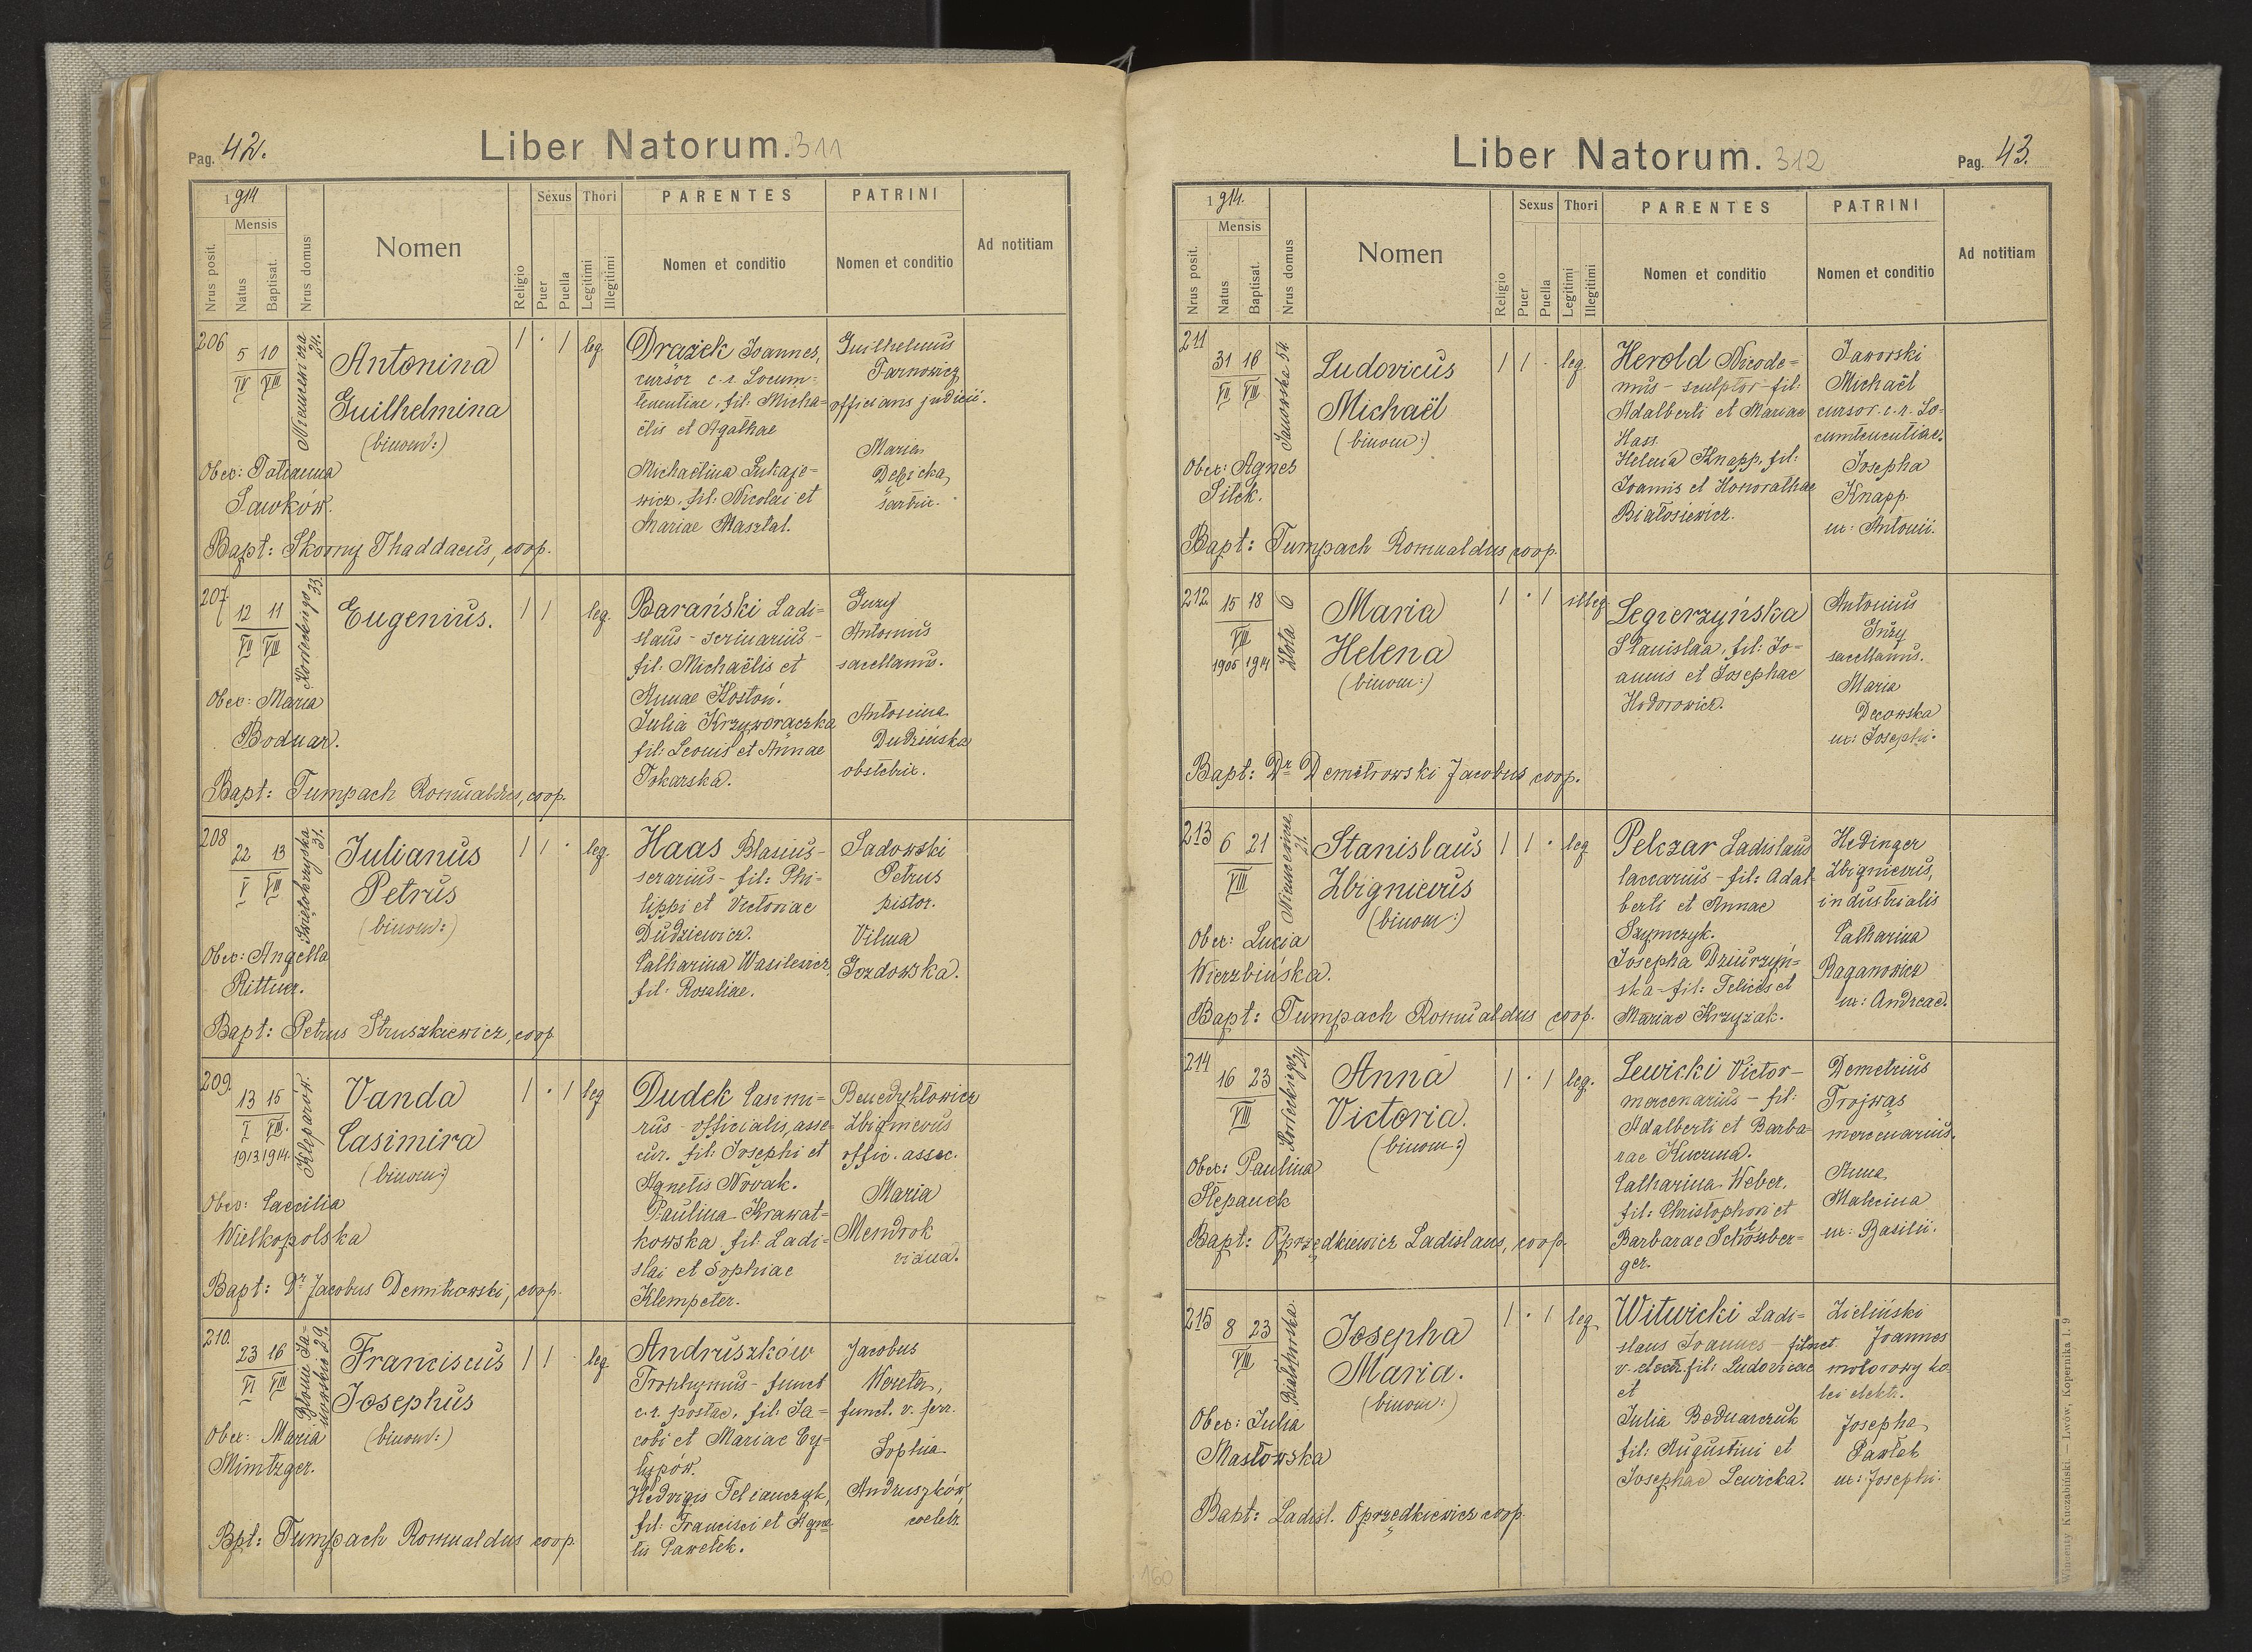 Pag. 42.
Liber Natorum. 311
1914
Mensis
Nrus posit.
Natus
Baptisat.
Nrus domus
Nomen
Religio
Sexus
Puer
Puella
Thori
Legitimi
Illegitimi
PARENTES
Nomen et conditio
PATRINI
Nomen et conditio
Ad notitiam
206
5 10
IV VIII
24.
Antonina
Guilhelmina
(binom:)
1 · 1 leg
Obst: Tatianna
Sawków.
Bapt: Skorny Thaddaeus, coop.
Drazek Joannes,
cursor c. r. Locum-
tenentiae, fil: Micha=
ëlis et Agathae
Michaëlina Lukaje=
wicz, fil: Nicolai et
Mariae Masztal.
Guilhelmus
Tarnowicz
officians judicii.
Maria
Debicka,
207
12 11
VII VIII
33.
Eugenius.
1 1 leg.
Obst: Maria
Bodnar.
Bapt: Tumpach Romualdus, coop.
Barański Ladi=
slaus - scriniarius -
fil: Michaëlis et
Annae Kostoń.
Julia Krzyworaczka
fil: Leonis et Annae
Tokarska.
Guzy
Antonius
sacellanus.
Antonina
Dudzińska
obstetrix.
208
22 13
V VIII
Świętokrzyska
31.
Julianus
Petrus
(binom:)
1 1 · leg.
Obst: Angella
Rittner.
Bapt: Petrus Struszkiewicz, coop
Haas Blasius -
serarius - fil: Phi-
lippi et Victoriae
Dudziewicz.
Catharina Wasilewicz,
fil: Rosaliae.
Sadowski
Petrus
pistor.
Vilma
Gozdowska.
209.
13 15
I VIII.
1913 1914.
Kleparów.
Vanda
Casimira
(binom:)
1 · 1 leg
Obst: Caecilia
Wielkopolska
Bapt: Dr Jacobus Demitrowski, coop.
Dudek Casimi=
rus - officialis, asse=
cur. fil: Josephi et
Agnetis Novak.
Paulina Krawat=
kowska, fil: Ladi=
slai et Sophiae
Klempeter.
Benedyktowicz
Zbignievus
offic. assec.
Maria
Mendrok
vidua.
210.
23 16
VI VIII
29.
Franciscus
Josephus
(binom:)
1 1 · leg
Obst: Maria
Mintzger.
Bpt: Tumpach Romualdus coop.
Andruszków
Trophymus - funct
c. r. postae, fil: Ja=
cobi et Mariae Cy=
lypów.
Hedvigis Felianczyk,
fil: Francisci et Agne
tis Pawełek.
Jacobus
Wereta,
funct. v. ferr.
Sophia
Andruszków
coeleb.
Liber Natorum. 312
Pag. 43.
1914.
Mensis
Nrus posit.
Natus
Baptisat.
Nrus domus
Nomen
Religio
Sexus
Puer
Puella
Thori
Legitimi
Illegitimi
PARENTES
Nomen et conditio
PATRINI
Nomen et conditio
Ad notitiam
211
31 16
VII VIII
Janowska 54.
Ludovicus
Michaël
(binom:)
1 1 · leg
Obst: Agnes
Silek.
Bapt: Tumpach Romualdus coop.
Herold Nicode=
mus - sculptor - fil:
Adalberti et Mariae
Hass.
Helena Knapp, fil:
Joannis et Honorathae
Białosiewicz.
Jaworski
Michaël
cursor c. r. Lo=
cumtenentiae.
Josepha
Knapp
ux: Antonii.
212
15 18
VIII
1905 1914
Złota 6
Maria
Helena
(binom:)
1 · 1 illeg
Bapt: Dr Demetrowski Jacobus coop.
Legierzyńska
Stanislaa, fil: Jo=
annis et Josephae
Hodorowicz.
Antonius
Guzy
sacellanus.
Maria
Decowska
ux: Josephi.
213
6 21
VIII
21.
Stanislaus
Zbignievus
(binom:)
1 1 · leg
Obst: Lucia
Wierzbińska.
Bapt: Tumpach Romualdus coop.
Pelczar Ladislaus
laccarius - fil: Adal-
berti et Annae
Szymczyk.
Josepha Dziurzyń=
ska - fil: Felicis et
Mariae Krzyżak.
Hedinger
Zbignievus,
industrialis
Catharina
Baganowicz
ux: Andreae.
214
16 23
VIII
24
Anna
Victoria.
(binom:)
1 · 1 leg.
Obst: Paulina
Stepanek
Bapt: Oprzędkiewicz Ladislaus, coop.
Lewicki Victor -
mercenarius - fil:
Adalberti et Barba-
rae Kuczma.
Catharina Weber,
fil: Christophori et
Barbarae Schössber=
ger.
Demetrius
Trojwąs
mercenarius.
Anna
Malecina
ux: Basilii.
215
8 23
VIII
Białohorska.
Josepha
Maria.
(binom:)
1 · 1 leg
Obst: Julia
Masłowska
Bapt: Ladisl. Oprzędkiewicz coop.
Witwicki Ladi=
slaus Joannes - funct.
v. electr. fil: Ludovicae
et
Julia Bednarczuk
fil: Augustini et
Josephae Lewicka.
Zieliński
Joannes
motorowy ko-
lei elektr.
Josepha
Pawlak
ux: Josephi.
160
Wincenty Kuczabiński. — Lwów, Kopernika l. 9